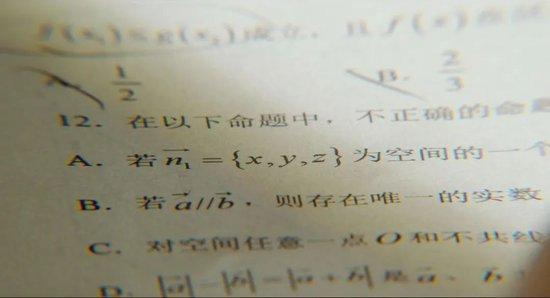 f(x₁)≤g(x₂)成立，且f(x)在
A. 1/2 B. 2/3
12. 在以下命题中，不正确的命题
A. 若n₁→={x,y,z}为空间的一个
B. 若a→//b→，则存在唯一的实数
C. 对空间任意一点O和不共线
D. |a→|-|b→|=|a→+b→|是a→、b→